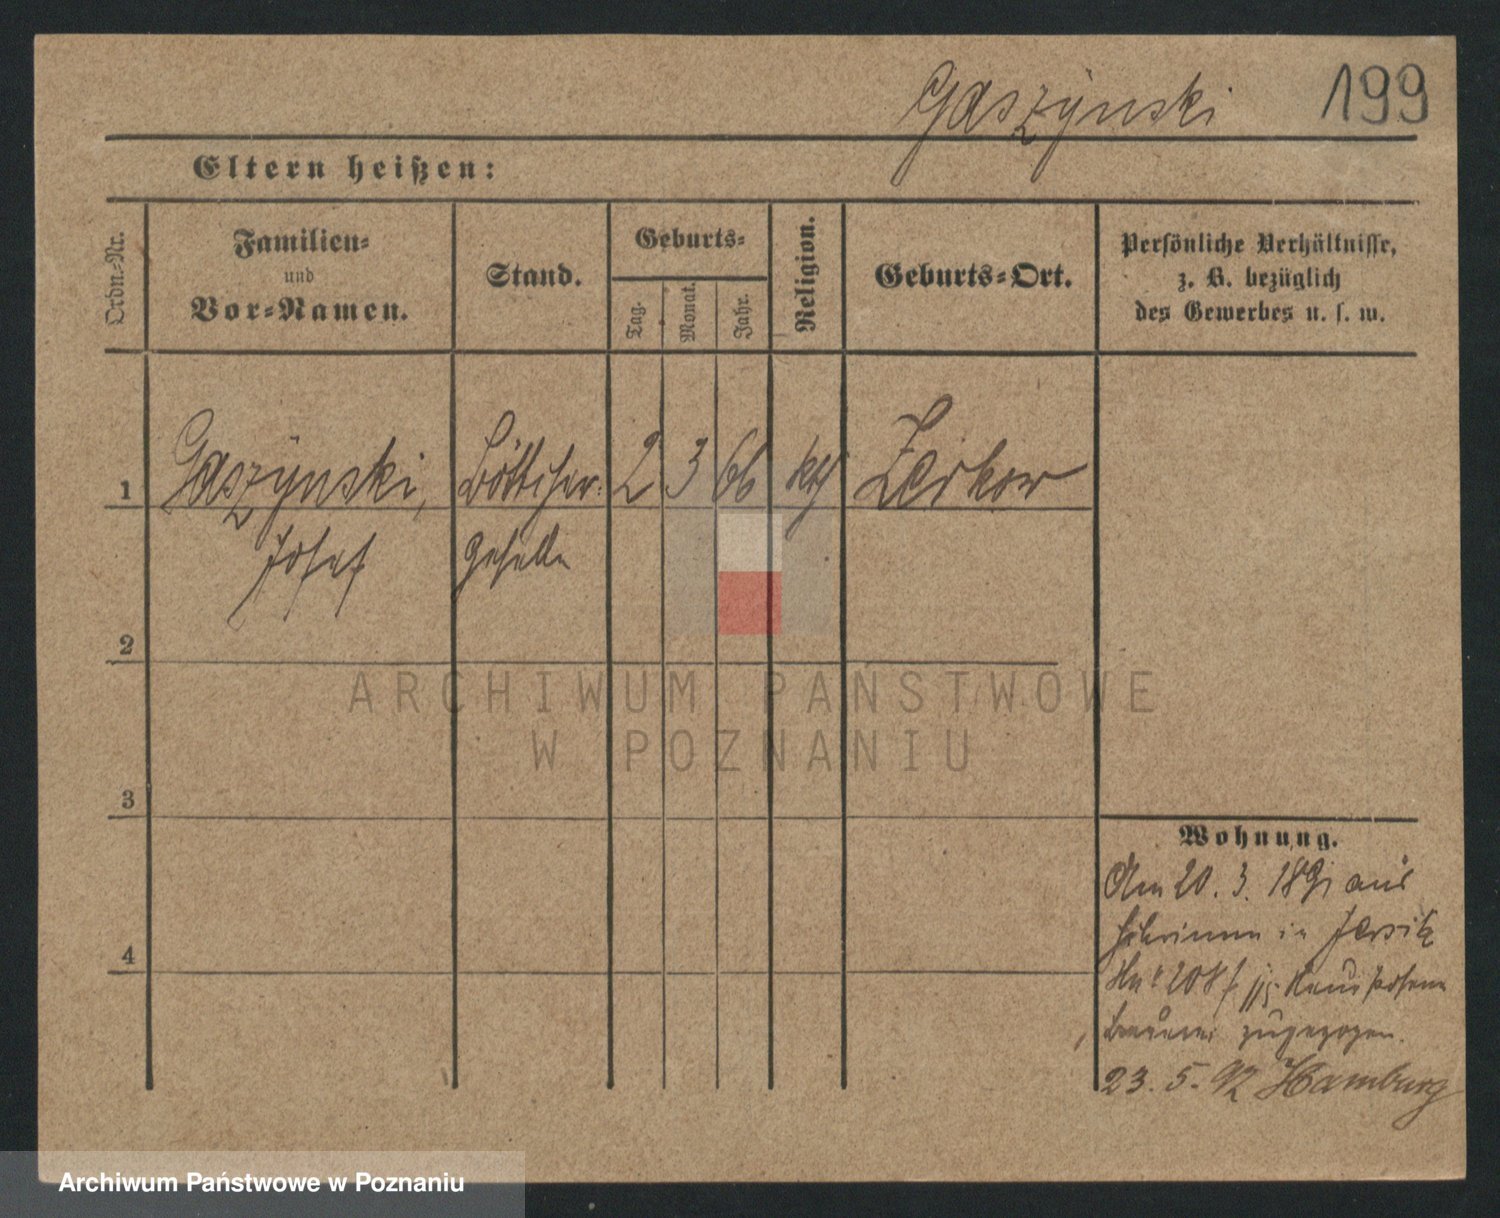 Gaszÿnski 199
Eltern heißen:
Ordn.-Nr.
Familien-
und
Vor-Namen.
Stand.
Geburts-
Tag.
Monat.
Jahr.
Religion.
Geburts-Ort.
Persönliche Verhältnisse,
z. B. bezüglich
des Gewerbes u. s. w.
1 Gaszÿnski, Böttcher- 2 3 66 kth Zerkow
Josef geselle
2
3
4
Wohnung.
Am 20. 3. 1891 aus
in Jersitz
zugezogen.
23. 5. 92 Hamburg
ARCHIWUM PAŃSTWOWE
W POZNANIU
Archiwum Państwowe w Poznaniu